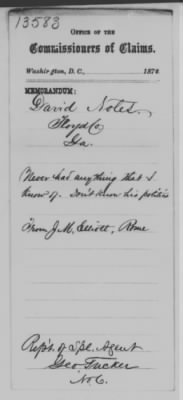 13583
OFFICE OF THE
Commissioners of Claims.
Washington, D. C., 1874
MEMORANDUM:
David Notes.
Floyd Co
Ga.
Never had anything that I
know of. Don't know his politics
From J. M. Elliott, Rome
Rept. of Spl. Agent
Geo. Tucker
No 6.